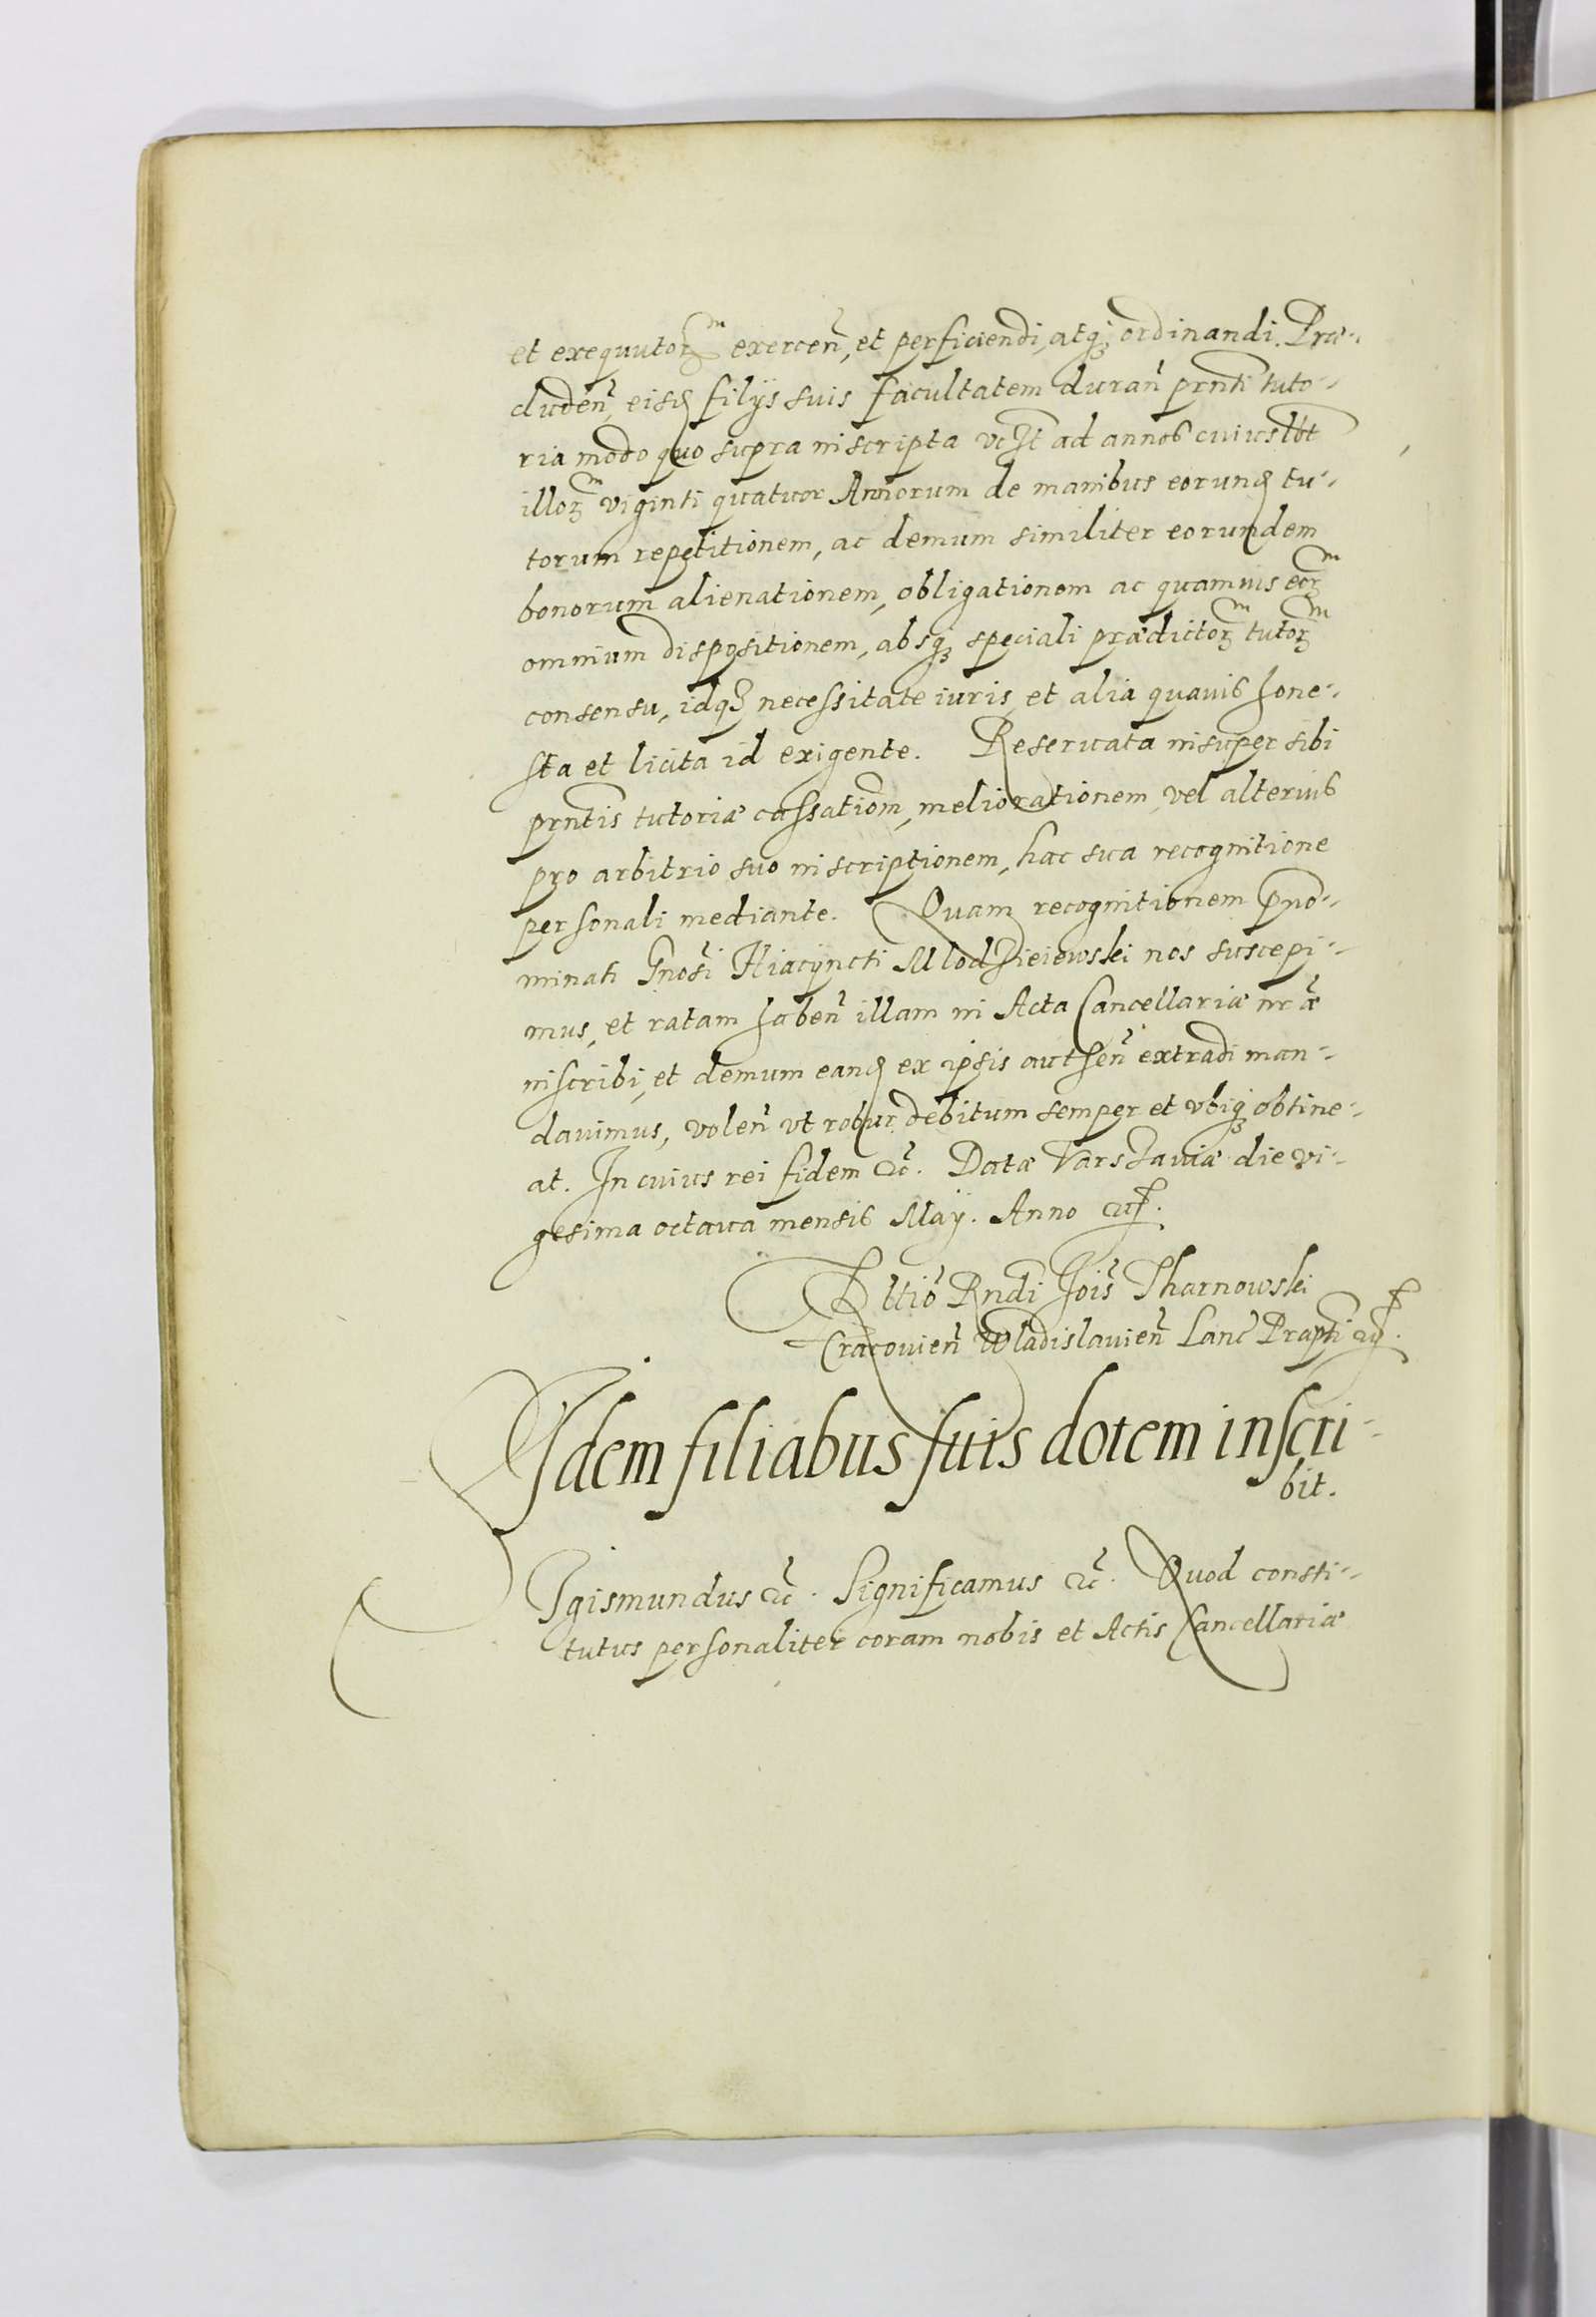 et exequutoꝝ exercen̄, et perficiendi, atqꝫ ordinandi. Præ-
cluden̄, eisd filijs suis facultatem duran̄ prn̄ti tuto-
ria modo quo supra inscripta ad annos cuiuslbt
illoꝝ viginti quatuor Annorum de manibus eorund tu-
torum repetitionem, ac demum similiter eorundem
bonorum alienationem, obligationem ac quamuis eorꝝ
omnium dispositionem, absqꝫ speciali prædictoꝝ tutoꝝ
consensu, idqꝫ necessitate iuris, et alia quauis hone-
sta et licita id exigente. Reseruata insuper sibi
prn̄tis tutoriæ cassatiom̄, meliorationem, vel alterius
pro arbitrio suo inscriptionem, hac sua recognitione
personali mediante. Quam recognitionem p̄no-
minati Gn̄osi Hiacÿncti Mlodzieiewski nos suscepi-
mus, et ratam haben̄ illam in Acta Cancellariæ nr̄æ
inscribi, et demum eand ex ipsis authen̄ extradi man-
dauimus, volen̄ vt robur debitum semper et vbiqꝫ obtine-
at. In cuius rei fidem &c̄. Datæ Varsauiæ die vi-
gesima octaua mensis Maÿ. Anno &c.
Rltio Rn̄di Jois̄ Tharnowski
Cracouien̄ Wladislauien̄ Lanc̄ Præpti &c.
Idem filiabus suis dotem inscri-
bit.
Sgismundus &c̄. Significamus &c̄. Quod consti-
tutus personaliter coram nobis et Actis Cancellariæ